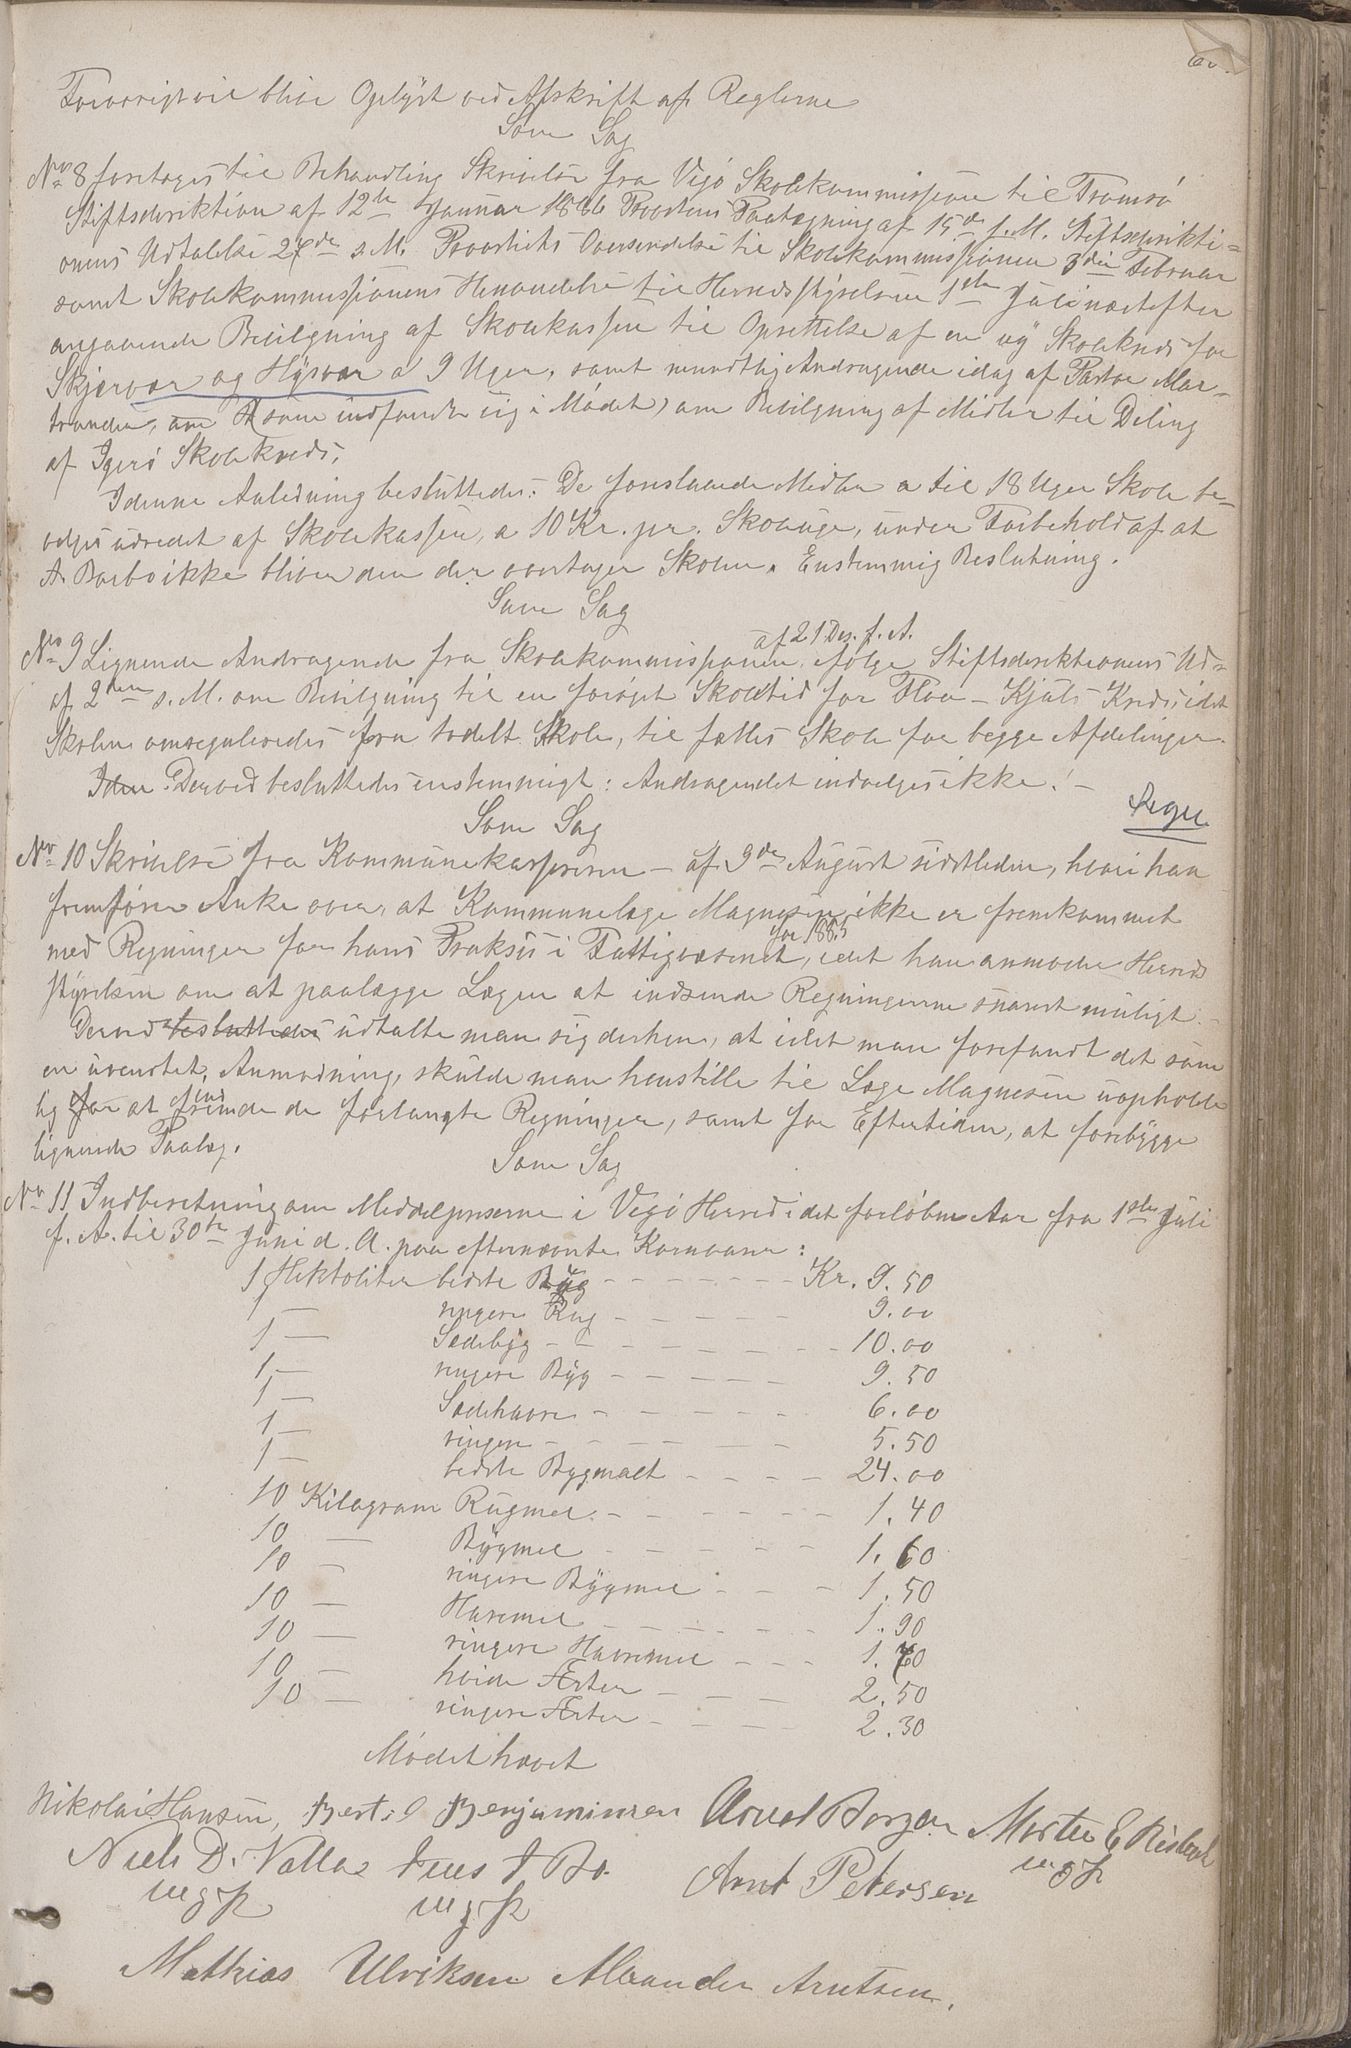 60.
Forøvrigt vil blive Oplyst ved Afskrift af Reglerne
Same Sag
No 8 foretoges til Behandling Skrivelse fra Vegø Skolekommission til Tromsø
Stiftsdirektion af 12te Januar 1886 Provstens Paategning af 15de s. M. Stiftsdirekti-
onens Udtalelse 27de s. M. Provstiets Oversendelse til Skolekommissionen 3die Februar
samt Skolekommissionens Henvendelse til Herredsstyrelsen 1ste Juli næstefter
angaaende Bevilgning af Skolekassen til Oprettelse af en ny Skolekreds for
Skjærvær og Hysvær a 9 Uger, samt mundtlig Andragende idag af Pastor Mar-
strander, om (som indfandt sig i Mødet) om Bevilgning af Midler til Deling
af Igerø Skolekreds.
I denne Anledning besluttedes: De foreslaaede Midler a til 18 Uger Skole be-
vilges udredet af Skolekassen, a 10 Kr. pr. Skoleuge, under Forbehold af at
A. Barbo ikke bliver den der overtager Skolen. Enstemmig Beslutning.
Same Sag
af 21 Des. f. A.
No 9 Lignende Andragende fra Skolekommissionen, ifølge Stiftsdirektionens Uds
af 2den s. M. om Bevilgning til en forøget Skoletid for Floa - Kjuls Kreds, idet
Skolen omreguleredes fra todelt Skole, til fælles Skole for begge Afdelinger.
Iden Derved besluttedes enstemmigt: Andragendet indvilges ikke! -
Læge
Same Sag
No 10 Skrivelse fra Kommunekassereren - af 9de August sidstleden, hvori han
fremfører Anke over, at Kommunelæge Magnesen ikke er fremkommet
for 1885
med Regninger for hans Praksis i Fattigvæsenet, idet han anmoder Herreds
styrelsen om at paalægge Lægen at indsende Regningerne snarest muligt -
Derved besluttedes udtalte man sig derhen, at idet man forefandt det som
en uventet, Anmodning, skulde man henstille til Læge Magnesen uopholde
lig for at indsende de forlangte Regninger, samt for Eftertiden, at forebygge
lignende Paalæg.
Same Sag
No 11 Indberetning om Middelpriserne i Vegø Herred i det forløbne Aar fra 1ste Juli
f. A. til 30te Juni d. A. paa efternævnte Kornvarer:
1 Hektoliter bedste Byg - - - - - - - Kr. 9.50
1 — ringere Rug - - - - - - 9.00
1 — Sædebyg - - - - - - - 10.00
1 — ringere Byg - - - - - 9.50
1 — Sædehavre - - - - - 6.00
1 — ringere - - - - - - 5.50
1 — bedste Bygmalt - - - - 24.00
10 Kilogram Rugmel - - - - - - 1.40
10 — Bygmel - - - - - - 1.60
10 — ringere Bygmel - - - 1.50
10 — Havremel - - - - - - 1.90
10 — ringere Havremel - - - 1.70
10 — hvide Ærter - - - - 2.50
10 — ringere Ærter - - - - 2.30
Mødet hævet
Nikolai Hansen, Bertil Benjaminsen Arnol Borgen Morten E Risbak
m g P
Niels D. Valla Jens J Bo. Arnt Petersen
m g P m g P
Mathias Ulriksen Alexander Arntsen.